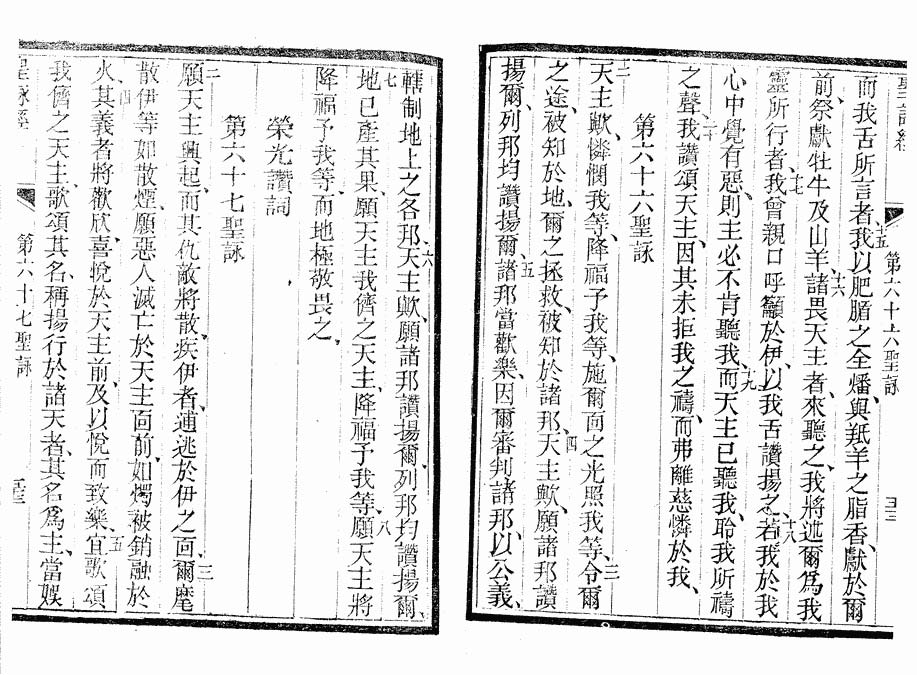 聖詠經
第六十六聖詠
而我舌所言者、十五我以肥腯之全燔與羝羊之脂香獻於爾
前、祭獻牡牛及山羊、十六諸畏天主者、來聽之、我將述爾爲我
靈所行者、十七我曾親口呼籲於伊、以我舌讚揚之、十八若我於我
心中覺有惡、則主必不肯聽我、十九而天主已聽我、聆我所禱
之聲、二十我讚頌天主、因其未拒我之禱、而弗離慈憐於我、
第六十六聖詠
二天主歟、憐憫我等、降福予我等、施爾面之光照我等、三令爾
之途、被知於地、爾之拯救、被知於諸邦、四天主歟、願諸邦讚
揚爾、列邦均讚揚爾、五諸邦當歡樂、因爾審判諸邦、以公義、
轄制地上之各邦、六天主歟、願諸邦讚揚爾、列邦均讚揚爾、
七地已產其果、願天主我儕之天主、降福予我等、八願天主將
降福予我等、而地極敬畏之、
榮光讚詞
第六十七聖詠
二願天主興起、而其仇敵將散、疾伊者、逋逃於伊之面、三爾麾
散伊等如散煙、願惡人滅亡於天主面前、如燭被銷融於
火、四其義者將歡欣、喜悅於天主前、及以悅而致樂、五宜歌頌
我儕之天主、歌頌其名、稱揚行於諸天者、其名爲主、當娛
聖詠經
第六十七聖詠